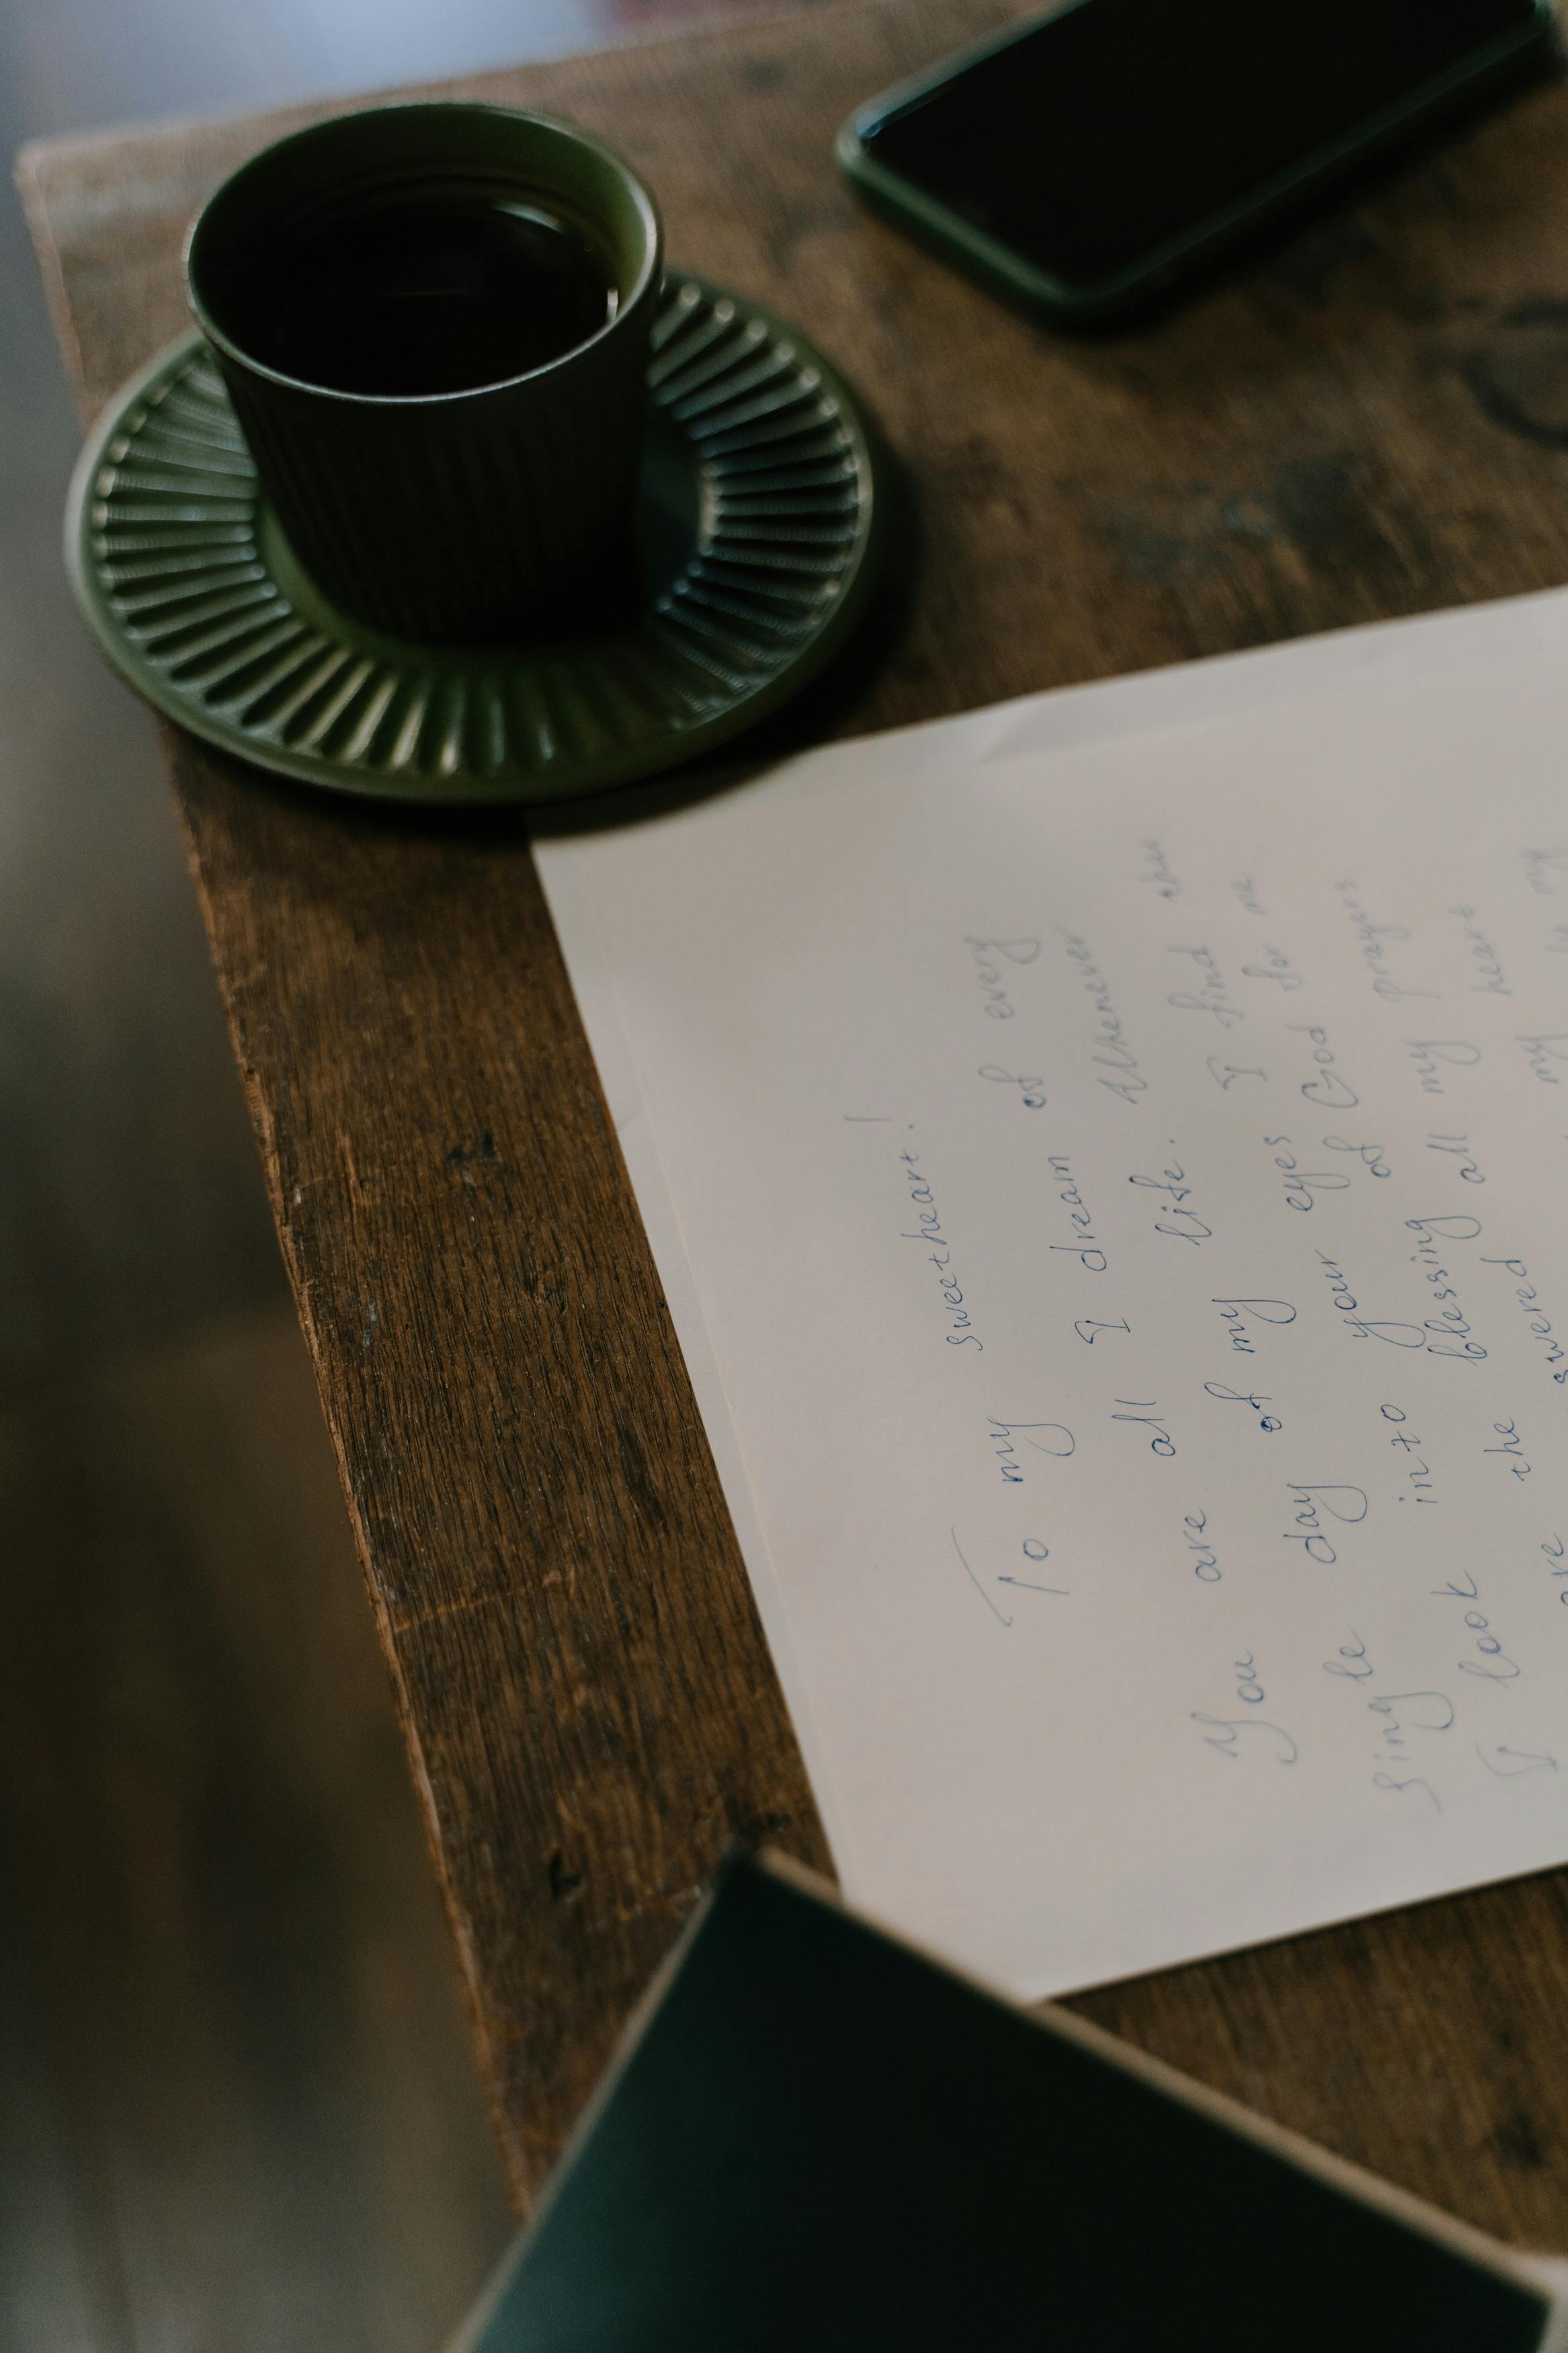 To my sweetheart!
You are all I dream of every
single day of my life. Whenever
I look into your eyes I find that
are the blessing of God for me
swered all my prayers
my heart
my